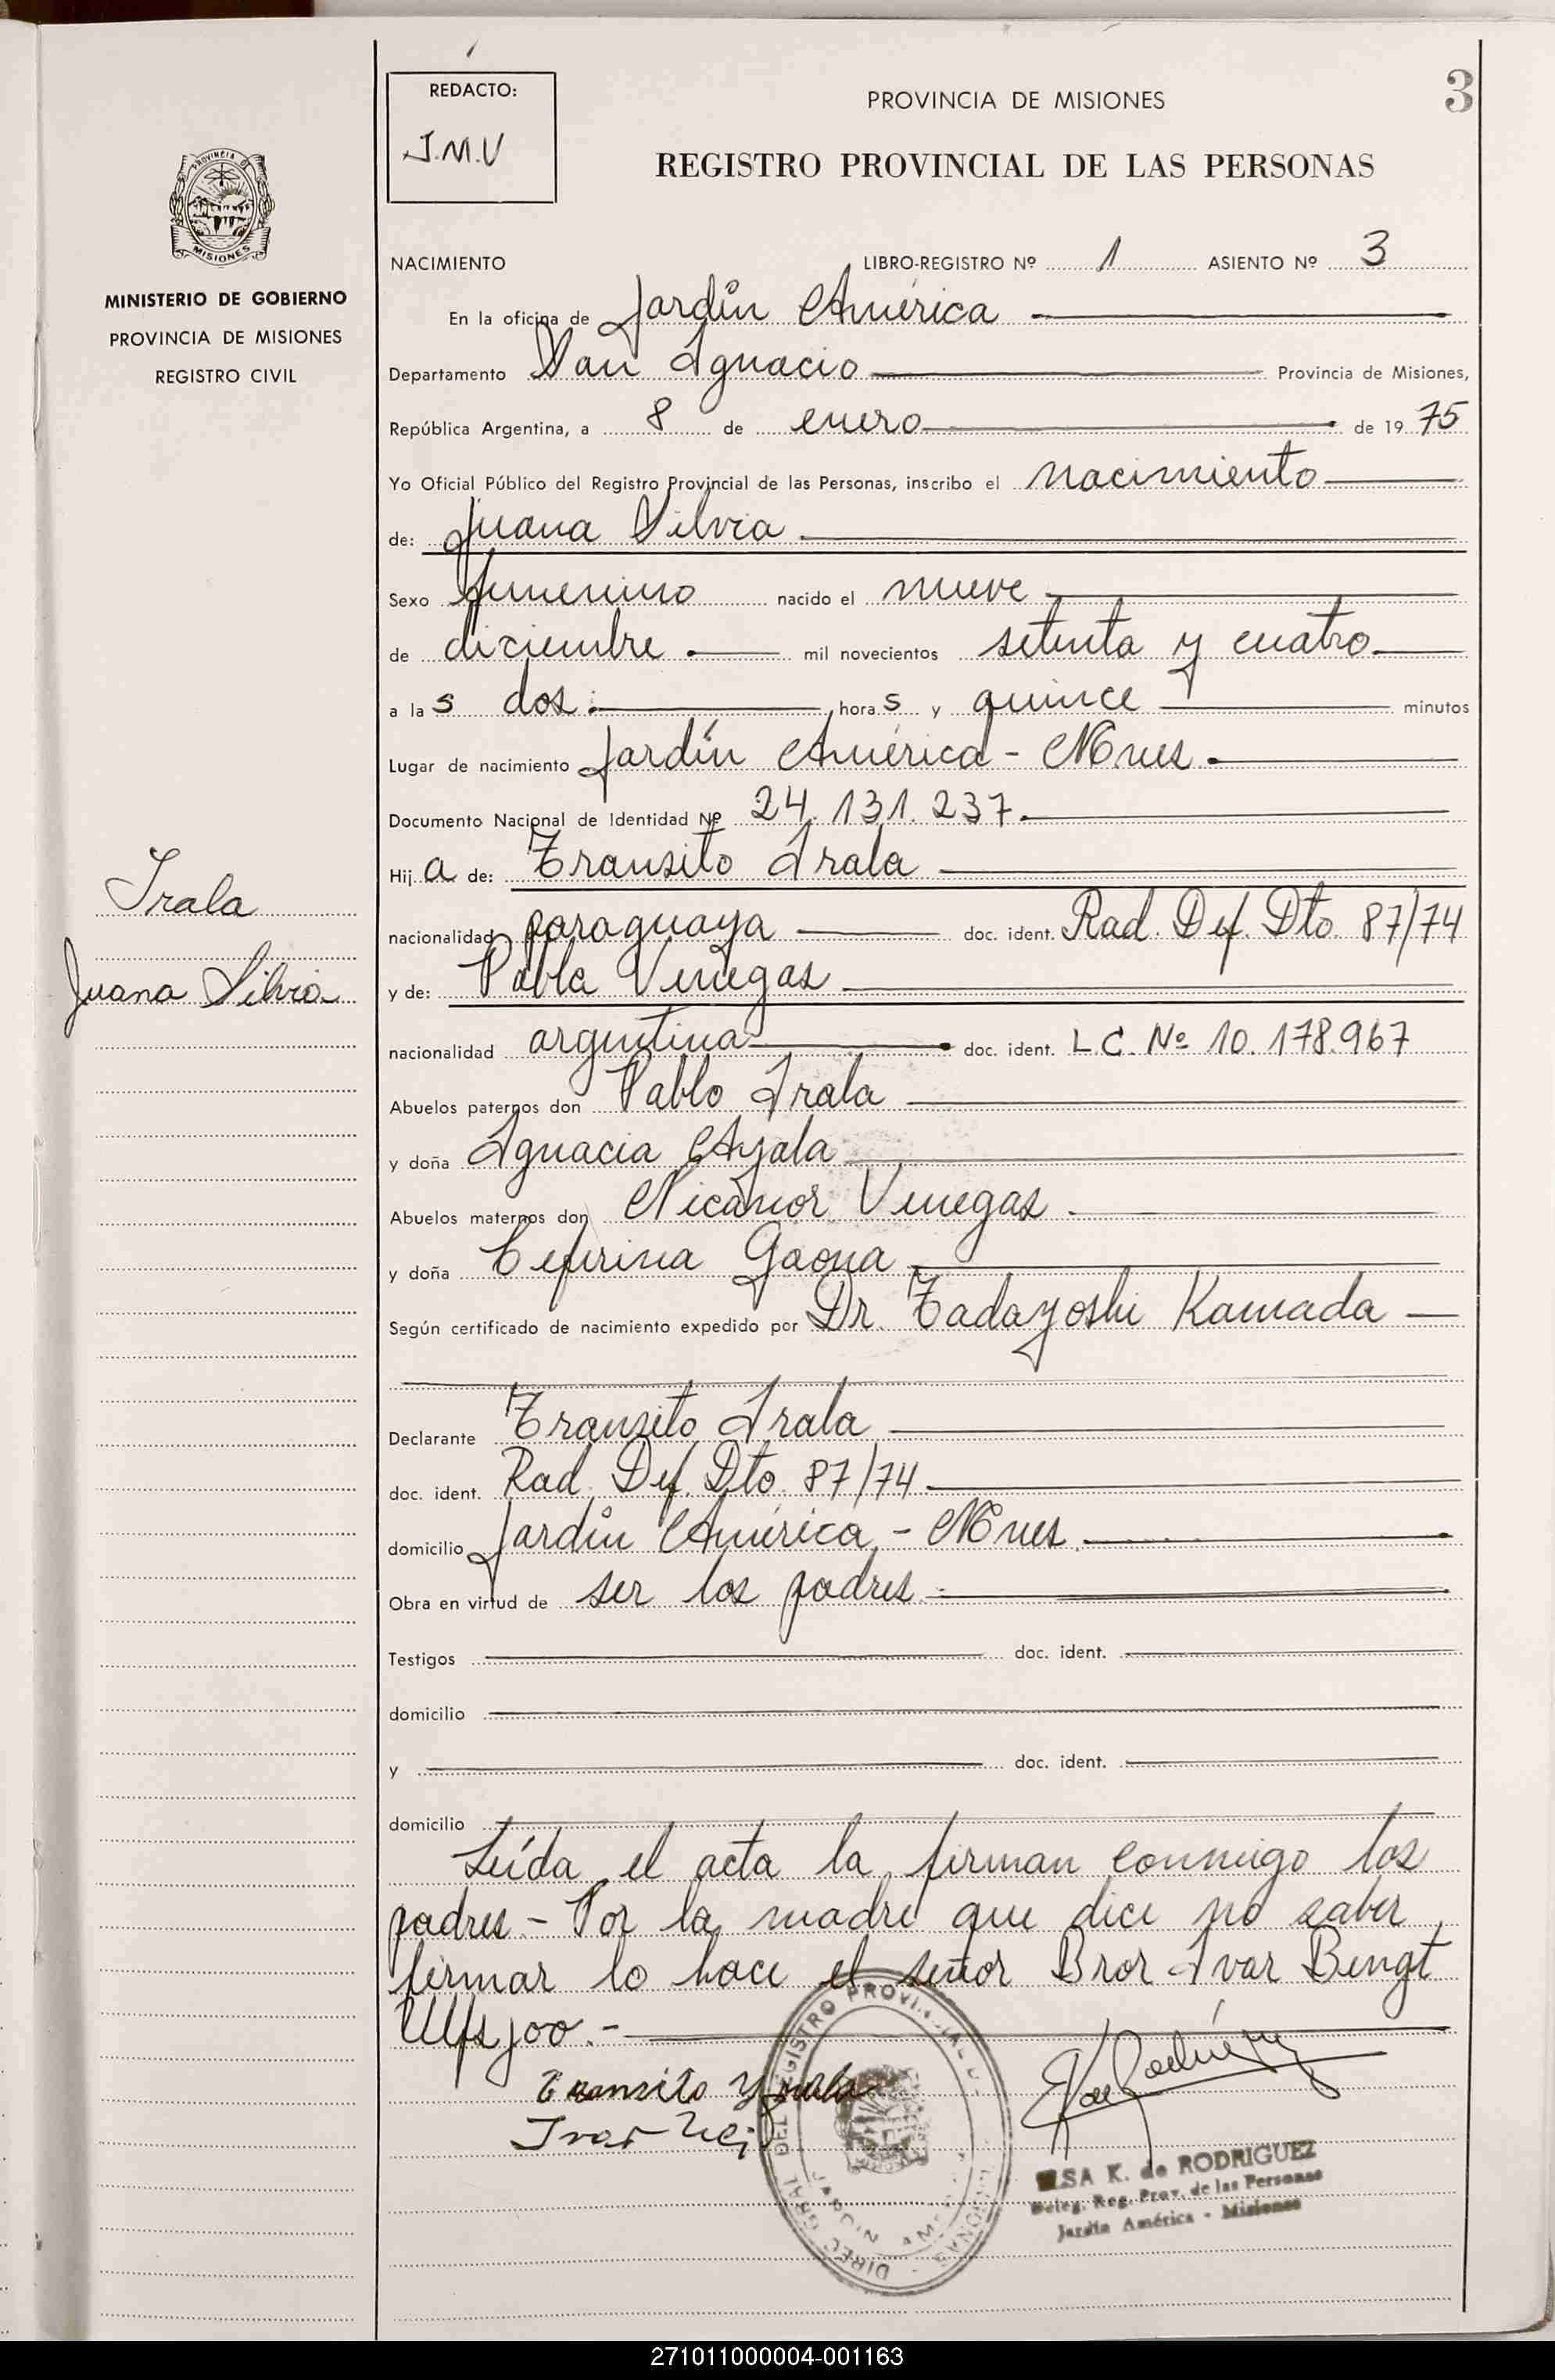 REDACTO:
J.M.V
PROVINCIA DE MISIONES
3
REGISTRO PROVINCIAL DE LAS PERSONAS
PROVINCIA DE
MISIONES
MINISTERIO DE GOBIERNO
PROVINCIA DE MISIONES
REGISTRO CIVIL
NACIMIENTO LIBRO-REGISTRO Nº 1 ASIENTO Nº 3
En la oficina de Jardín América
Departamento San Ignacio Provincia de Misiones,
República Argentina, a 8 de enero de 1975
Yo Oficial Público del Registro Provincial de las Personas, inscribo el nacimiento
de: Juana Silvia
Sexo femenino nacido el nueve
de diciembre mil novecientos setenta y cuatro
a las dos hora s y quince minutos
Lugar de nacimiento Jardín América - Mnes.
Documento Nacional de Identidad Nº 24.131.237.
Hija de: Transito Irala
Irala
nacionalidad paraguaya doc. ident. Rad. Def. Dto. 87/74
Juana Silvia
y de: Pabla Venegas
nacionalidad argentina doc. ident. L C. Nº 10.178.967
Abuelos paternos don Pablo Irala
y doña Ignacia Ayala
Abuelos maternos don Nicanor Venegas
y doña Ceferina Gaona
Según certificado de nacimiento expedido por Dr. Tadayoshi Kamada
Declarante Transito Irala
doc. ident. Rad. Def. Dto. 87/74
domicilio Jardín América - Mnes.
Obra en virtud de ser los padres
Testigos doc. ident.
domicilio
y doc. ident.
domicilio
Leída el acta la firman conmigo los
padres.- Por la madre que dice no saber
firmar lo hace el señor Bror Ivar Bengt
Ulfsjoo.-
Transito Yrala
Ivar
DIREC. GRAL. DEL REGISTRO PROVINCIAL DE PERSONAS
JARDIN AMERICA
ELSA K. de RODRIGUEZ
Deleg. Reg. Prov. de las Personas
Jardín América - Misiones
271011000004-001163